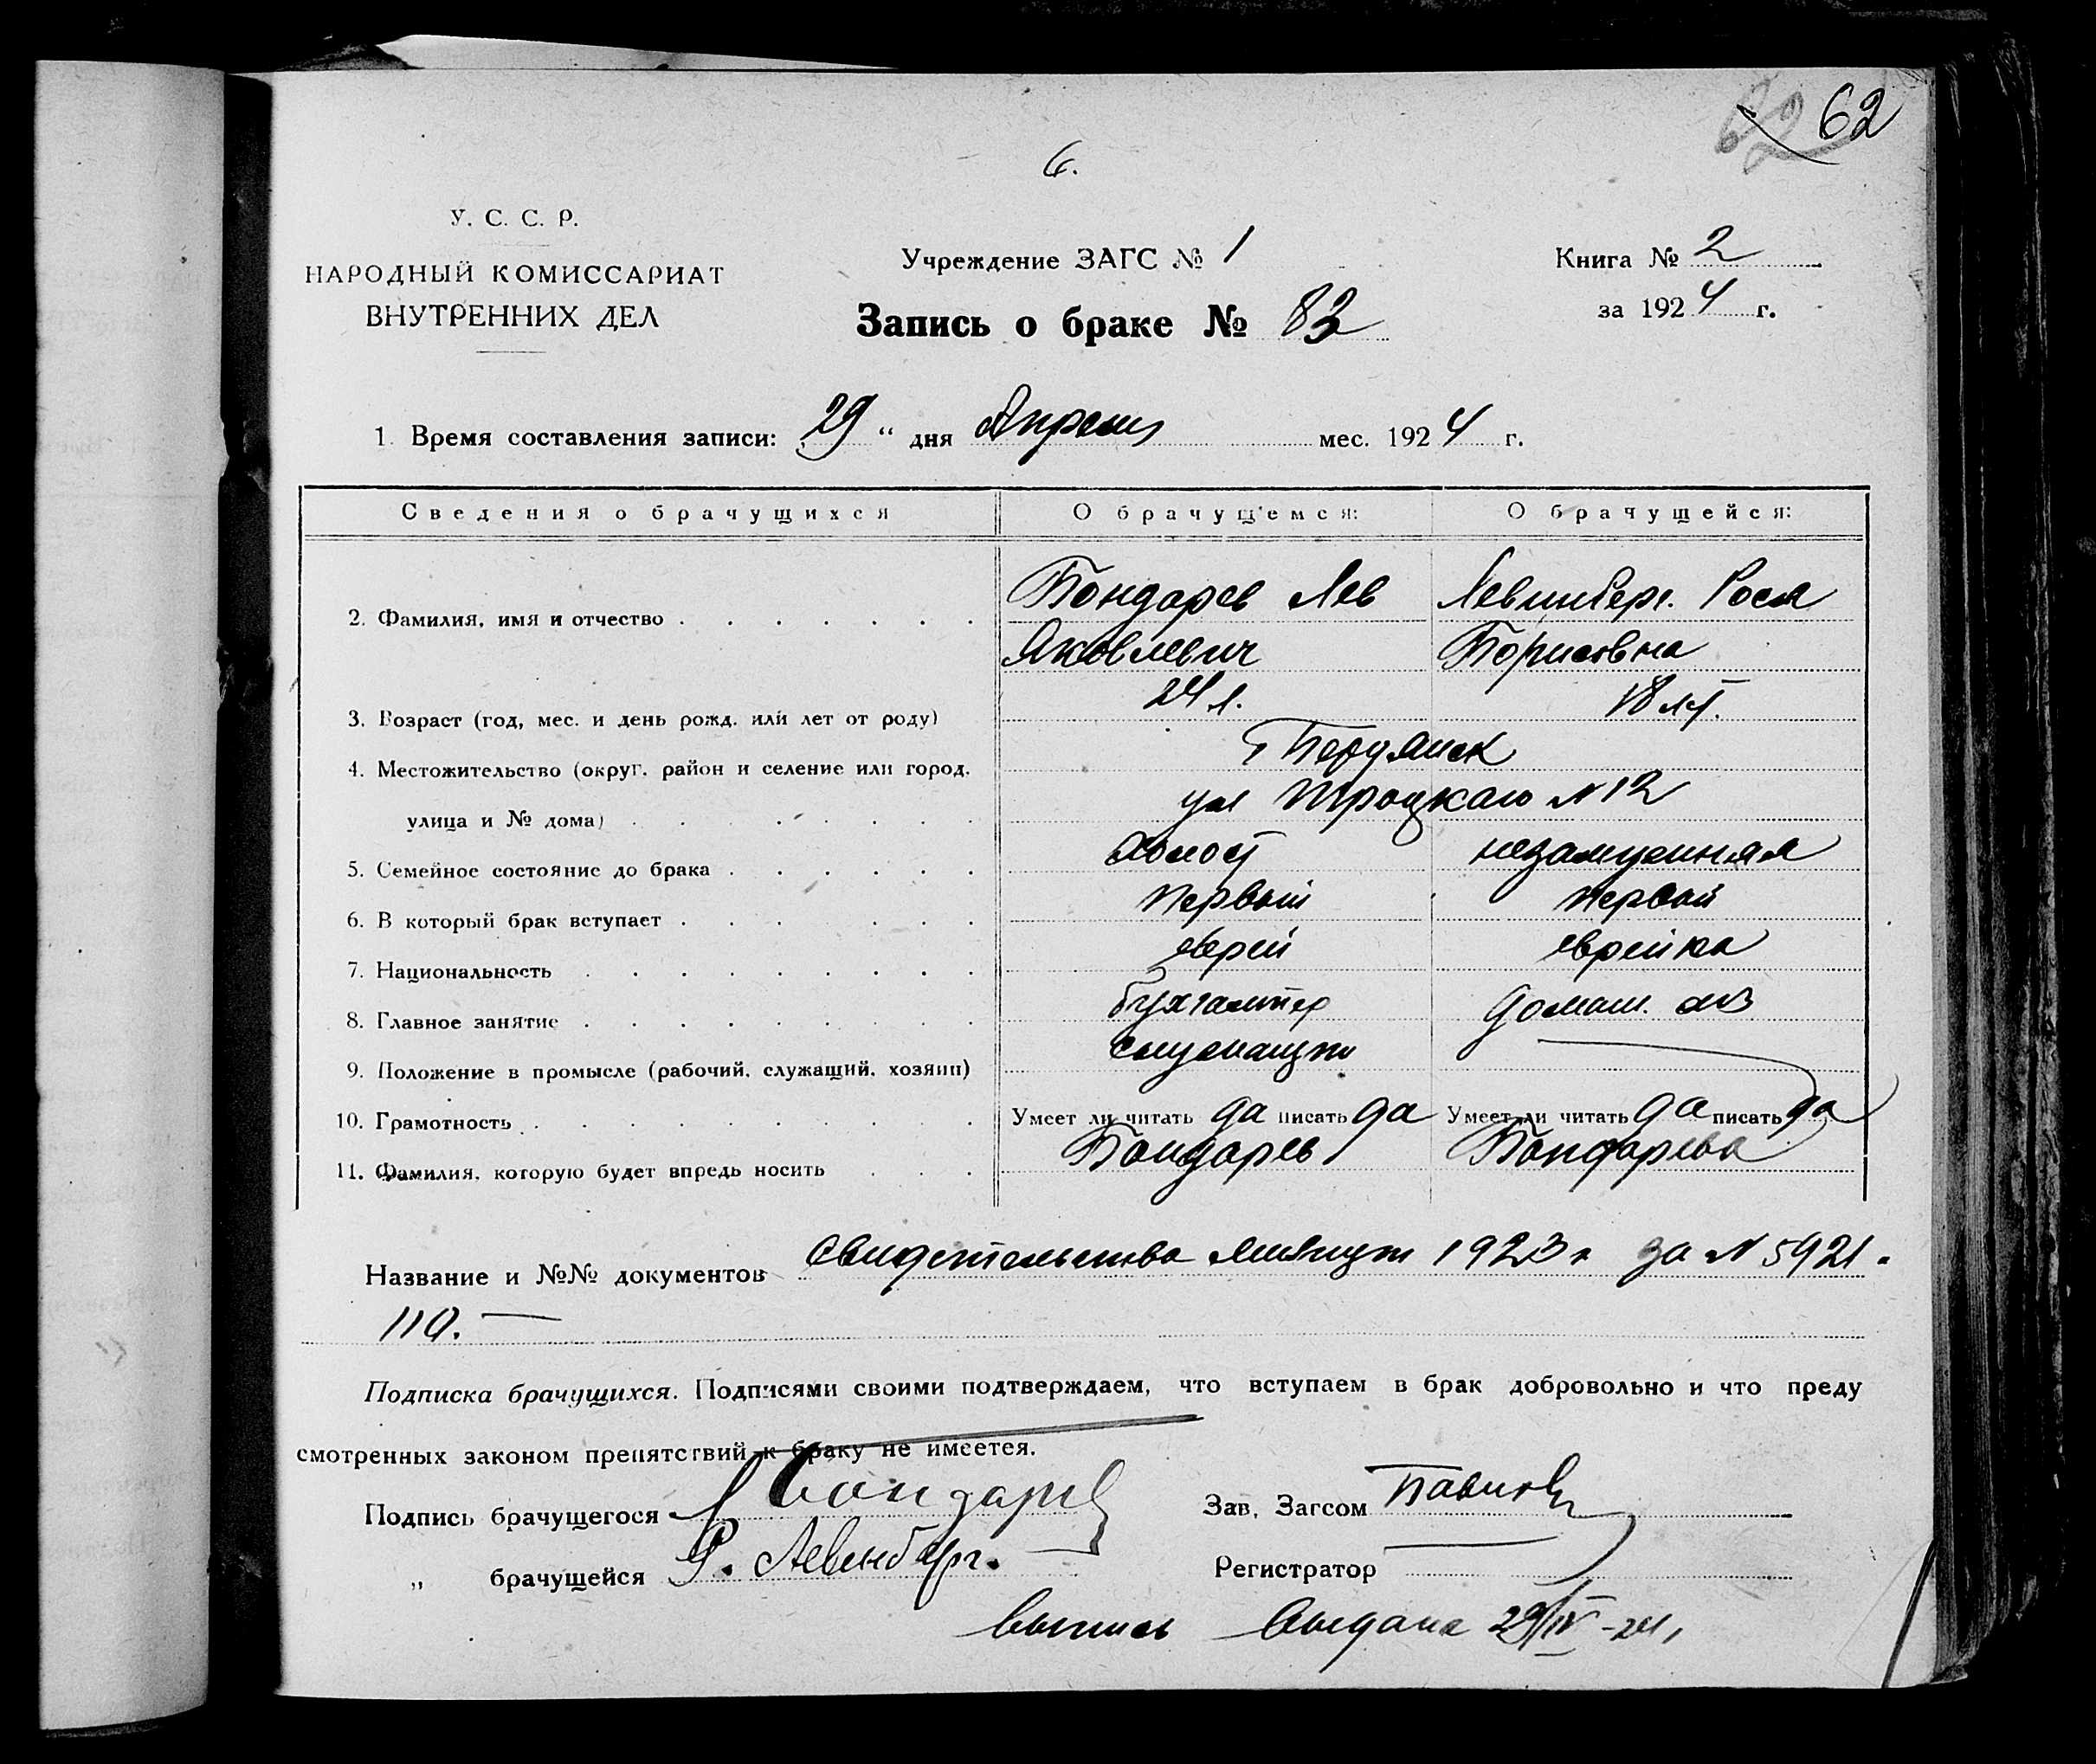 62 62
6.
У. С. С. Р.
НАРОДНЫЙ КОМИССАРИАТ
ВНУТРЕННИХ ДЕЛ
Учреждение ЗАГС № 1
Запись о браке № 83
Книга № 2
за 1924 г.
1. Время составления записи: „29“ дня Апреля мес. 1924 г.
Сведения о брачущихся О брачущемся: О брачущейся:
2. Фамилия, имя и отчество Бондарев Лев Левинберг. Роза
Яковлевич Борисовна
3. Возраст (год, мес. и день рожд. или лет от роду) 24 л. 18 лт.
4. Местожительство (округ. район и селение или город. г Бердянск
улица и № дома) ул Троцкаго N 12
5. Семейное состояние до брака холост незамужняя
6. В который брак вступает первый первый
7. Национальность еврей еврейка
8. Главное занятие бухгалтер домаш. хоз
9. Положение в промысле (рабочий, служащий, хозяин)
10. Грамотность Умеет ли читать да писать да Умеет ли читать да писать да
11. Фамилия, которую будет впредь носить Бондарев Бондарева
Название и №№ документов свидетельства 1923 г за N 5921.
110. —
Подписка брачущихся. Подписями своими подтверждаем, что вступаем в брак добровольно и что преду
смотренных законом препятствий к браку не имеется.
Подпись брачущегося Бондарев
„ брачущейся Р. Левинберг.
Зав. Загсом
Регистратор
Выпись выдана 29/IV-24,